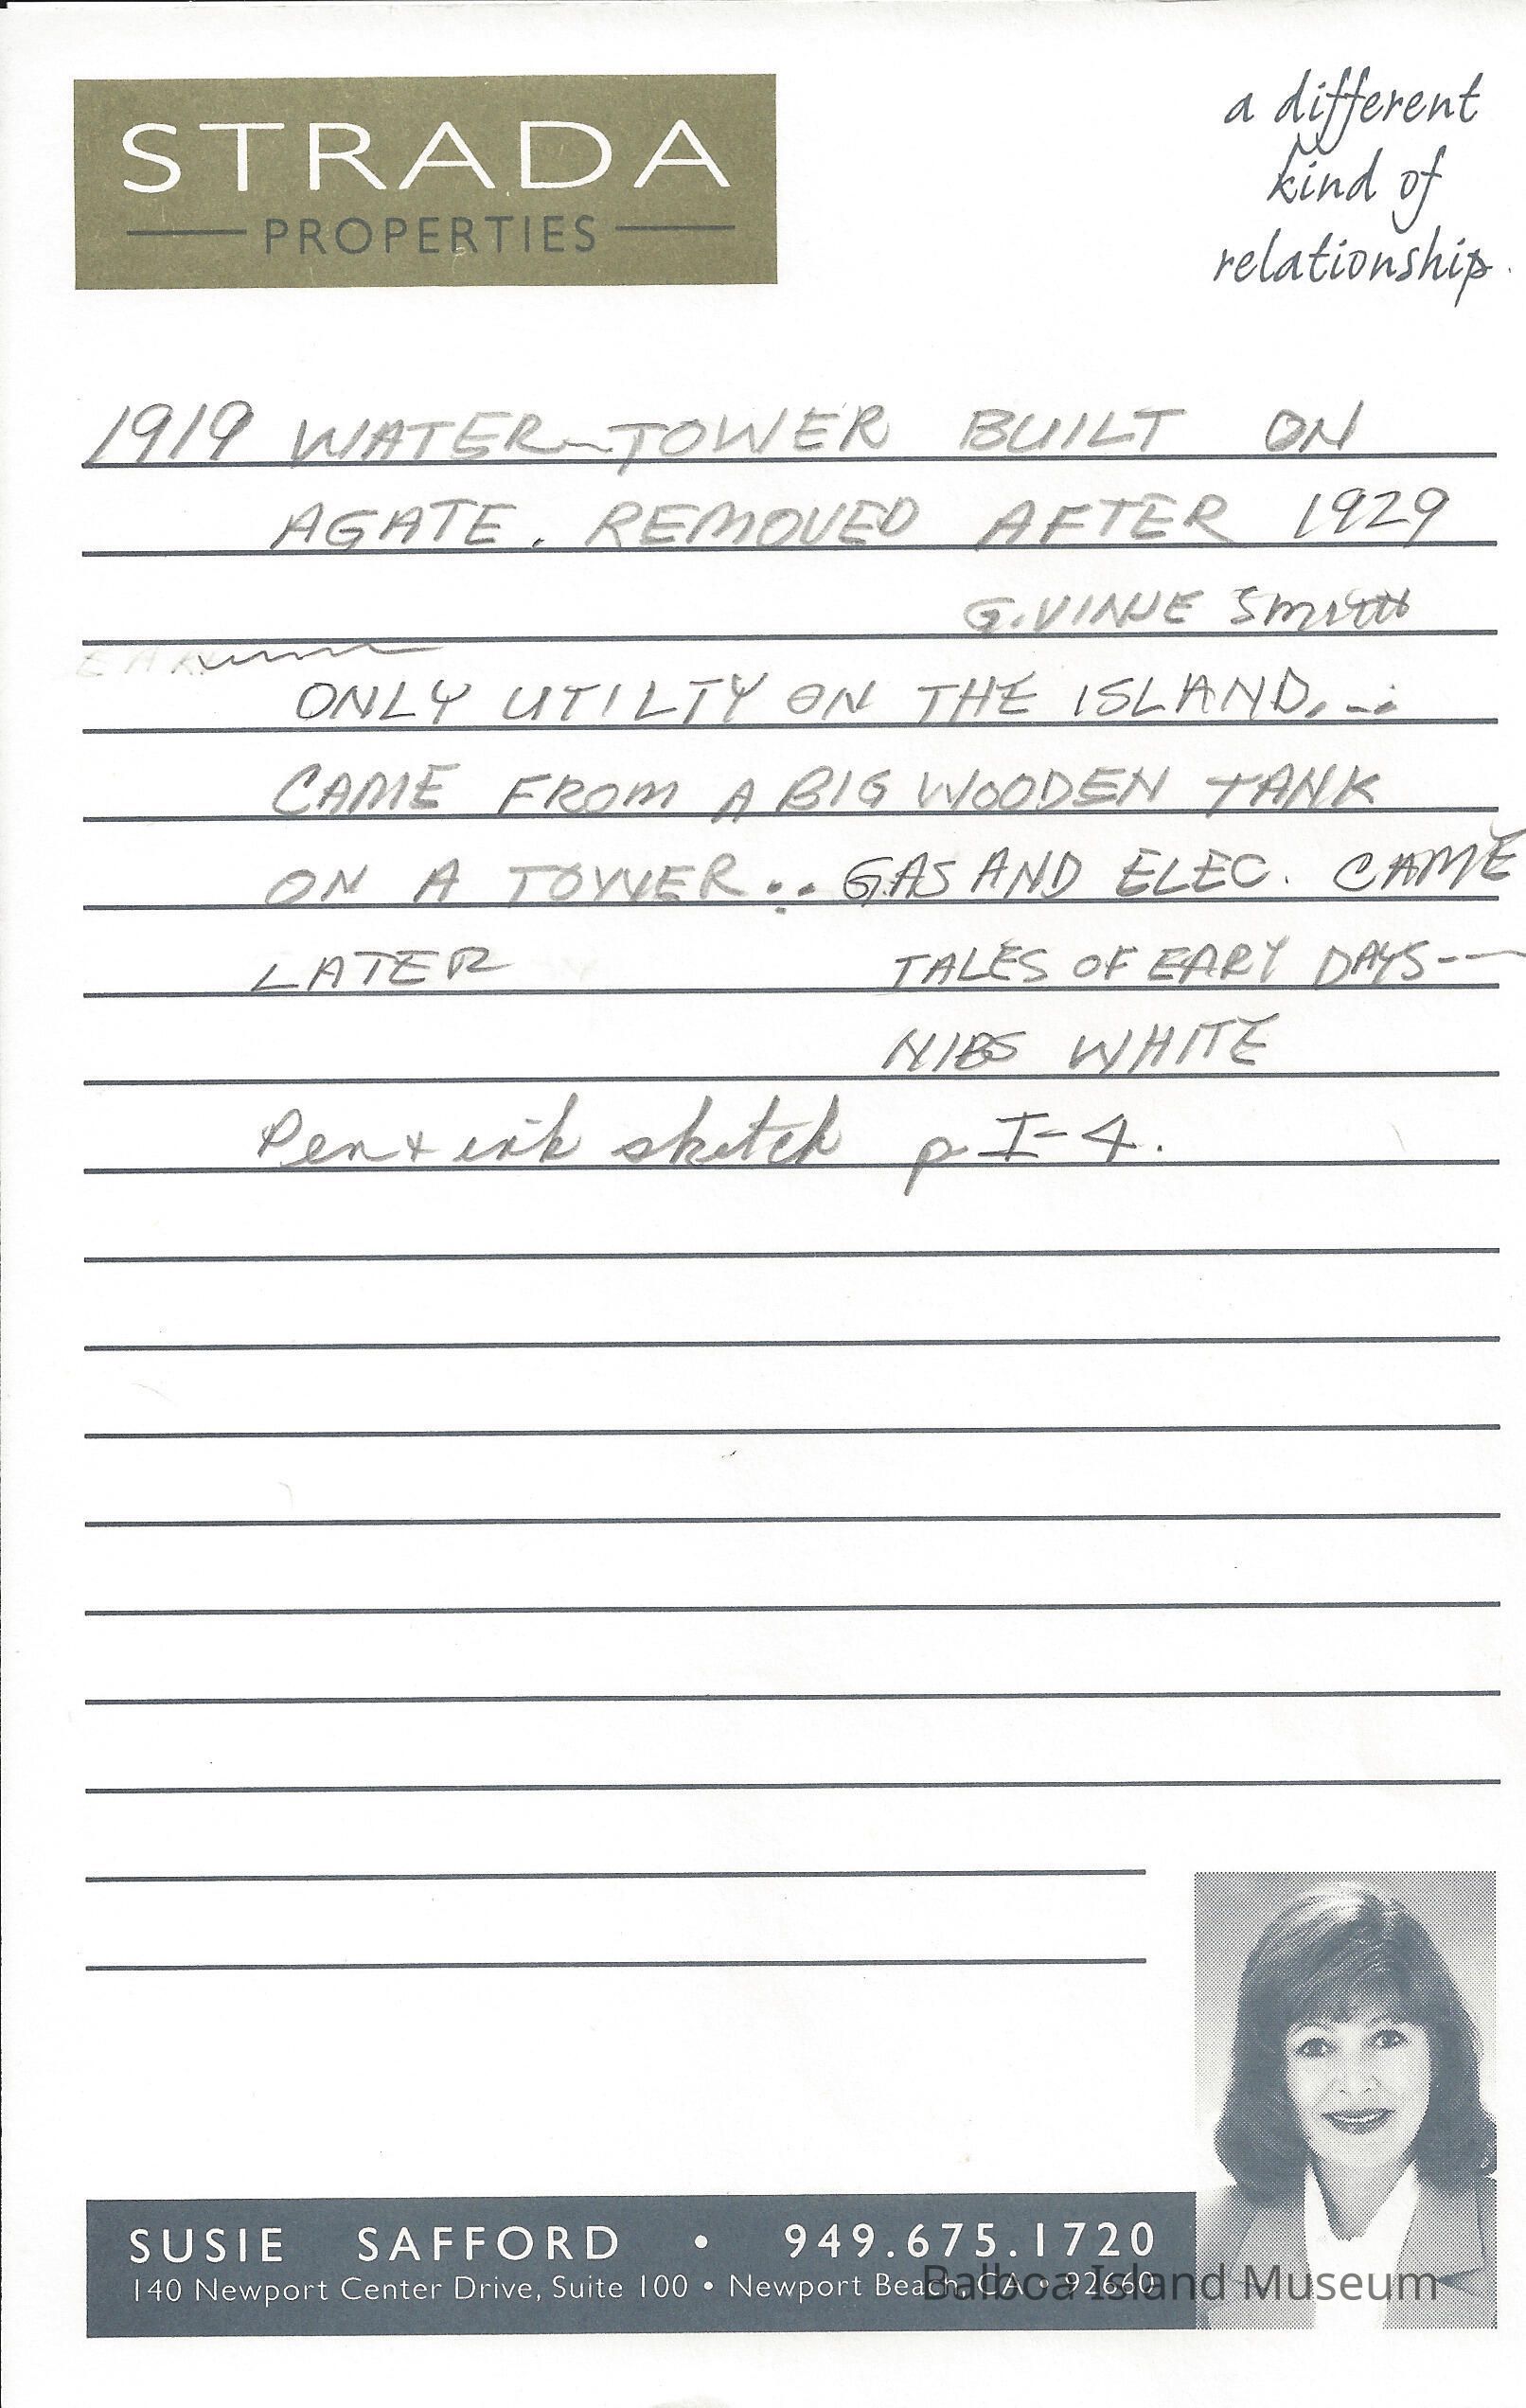 STRADA
PROPERTIES
a different
kind of
relationship.
1919 WATER-TOWER BUILT ON
AGATE. REMOVED AFTER 1929
G. VINJE Smith
ONLY UTILTY ON THE ISLAND. --
CAME FROM A BIG WOODEN TANK
ON A TOWER.. GAS AND ELEC. CAME
LATER TALES OF EARY DAYS---
NIBS WHITE
Pen + ink sketch p I-4.
SUSIE SAFFORD • 949.675.1720
140 Newport Center Drive, Suite 100 • Newport Beach, CA • 92660
Balboa Island Museum